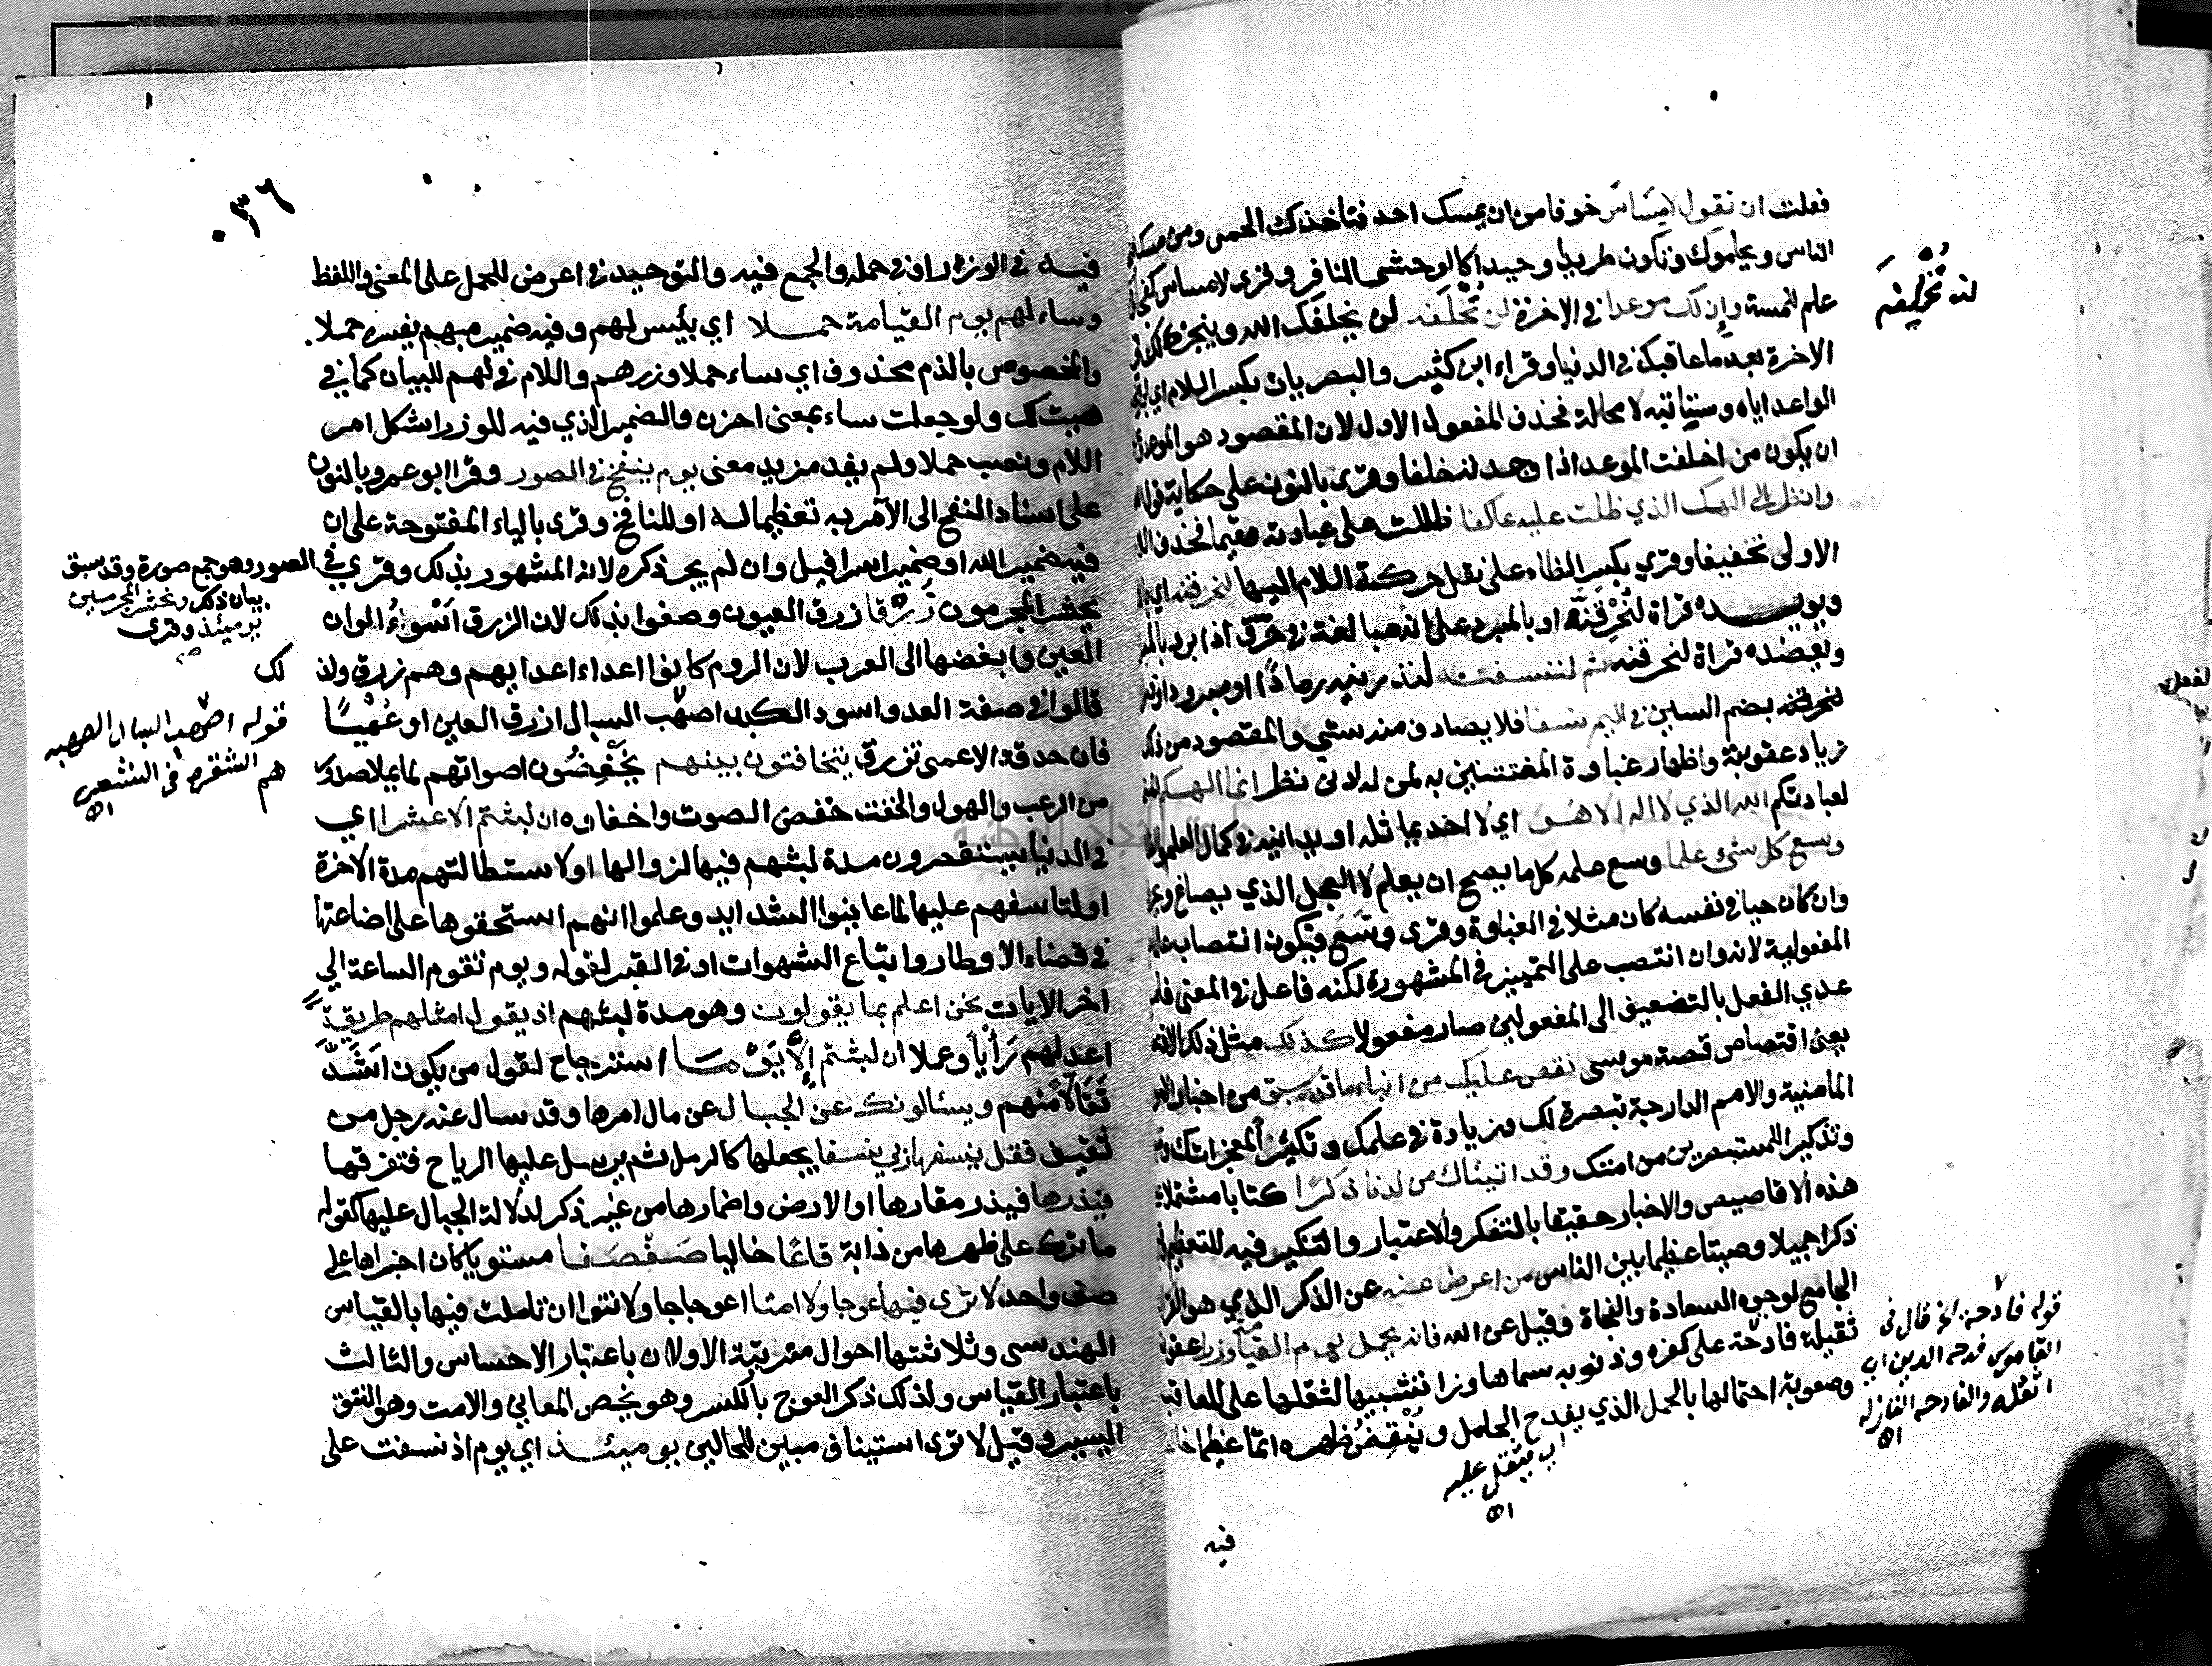 فعلت ان تقول لا مساس خوفا من ان يمسك احد فتاخذك الحمى ومن مسك فتحامى
الناس ويحاموك وتكون طريدا وحيدا كالوحشى النافر وقرى لا مساس كفجار
علم للمسة وان لك موعدا فى الاخرة لن تُخْلَفه لن يخلفك الله وينجزه لك فى
الاخرة بعد ما عاقبك فى الدنيا وقراء ابن كثير والبصريان بكسر اللام اى لن تخلف
الواعد اياه وستاتيه لا محالة فحذف المفعول الاول لان المقصود هو الموعد
ان يكون من اخلفت الموعد اذا وجدته خلفا وقرى بالنون على حكاية قوله
وانظر الى الهك الذي ظلت عليه عاكفا ظللت على عبادته مقيما فحذف اللام
الاولى تخفيفا وقرى بكسر الظاء على نقل حركة اللام اليها لنحرقنه اى بالنار
ويويده قراة لنُحْرِقنّه او بالمبرد على انه مبالغة فى حرّق اذا برد بالمبرد
ويعضده قراة لنحرقنه ثم لننسفنه لنذرينه رمادًا او مبرودا وقرى
لنحرقنه بضم السين فى اليم نسفا فلا يصادف منه شئي والمقصود من ذلك
زيادة عقوبة واظهار غباوة المفتتنين به لمن له ادنى نظر انما الهكم
لعبادتكم الله الذي لا اله الا هو اى لا احد يماثله او يدانيه فى كمال العلم والقدرة
وسع كل شئ علما وسع علمه كل ما يصح ان يعلم لا العجل الذي يصاغ ويحرق
وان كان حيا فى نفسه كان مثلا فى الغباوة وقرى وسّع فيكون انتصاب علما
المفعولية لانه وان انتصب على التمييز فى المشهورة لكنه فاعل فى المعنى فلما
عدي الفعل بالتضعيف الى المفعولين صار مفعولا كذلك مثل ذلك الاقتصاص
يعنى اقتصاص قصة موسى نقص عليك من انباء ما قد سبق من اخبار الامور
الماضية والامم الدارجة تبصرة لك وزيادة فى علمك وتكثيرا لمعجزاتك وتنبيها
وتذكيرا للمستبصرين من امتك وقد اتيناك من لدنا ذكرًا كتابا مشتملا على
هذه الاقاصيص والاخبار حقيقا بالتفكر والاعتبار والتنكير فيه للتعظيم
ذكرا جميلا وصيتا عظيما بين الناس من اعرض عنه عن الذكر الذي هو القران
الجامع لوجوه السعادة والنجاة وقيل عن الله فانه يحمل يوم القيمة وزرا عقوبة
ثقيلة فادحة على كفره وذنوبه سماها وزرا تشبيها لثقلها على المعاقب
وصعوبة احتمالها بالحمل الذي يفدح الحامل وينقض ظهره اثما عظيما خالدين
اي يثقل عليه اه
فيه
لن تُخْلِفَه
قوله فادحة الخ قال فى
القاموس فدحه الدين اى
اثقله والفادحة النازلة
اه
٠٣٦
فيه فى الوزر او فى حمله والجمع فيه والتوحيد فى اعرض للحمل على المعنى واللفظ
وساء لهم يوم القيامة حملا اي بئيس لهم وفيه ضمير مبهم يفسره حملا
والمخصوص بالذم محذوف اي ساء حملا وزرهم واللام فى لهم للبيان كما فى
هيت لك ولو جعلت ساء بمعنى احزن والضمير الذي فيه للوزر اشكل امر
اللام ونصب حملا ولم يفد مزيد معنى يوم ينفخ فى الصور وقرا ابو عمرو بالنون
على اسناد النفخ الى الآمر به تعظيما له او للنافخ وقرى بالياء المفتوحة على ان
فيه ضمير الله او ضمير اسرافيل وان لم يجر ذكره لانه المشهور بذلك وقرى فى الصور وهو جمع صورة وقد سبق
بيان ذلك ونحشر المجرمين
يومئذ وقرى
صح
يحشر المجرمون زُرقا زرق العيون وصفوا بذلك لان الزرق اسْواءُ الوان
العين وابغضها الى العرب لان الروم كانوا اعداء اعدايهم وهم زرق ولذلك
قالوا فى صفة العدو اسود الكبد اصهب السبال ازرق العين او عُمْيًا
قوله اصهب السبال الصهبه
هم الشقره فى الشعر
اه
فان حدقة الاعمى تزرق يتخافتون بينهم يخفضون اصواتهم لما يملا صدورهم
من الرعب والهول والخفت خفض الصوت واخفاوه ان لبثتم الا عشرا اي
فى الدنيا يستقصرون مدة لبثهم فيها لزوالها او لاستطالتهم مدة الاخرة
او لتاسفهم عليها لما عاينوا الشدايد وعلموا انهم استحقوها على اضاعتها
فى قضاء الاوطار واتباع الشهوات او فى القبر لقوله ويوم تقوم الساعة الى
اخر الايات نحن اعلم بما يقولون وهو مدة لبثهم اذ يقول امثلهم طريقةً
اعدلهم رَأْياً وعملا ان لبثتم إلّا يَوْما استرجاح لقول من يكون اشَدّ
تَقَالّاً منهم ويسئالونك عن الجبال عن مال امرها وقد سال عنه رجل من
ثقيف فقل ينسفها ربي نسفا يجعلها كالرمل ثم يرسل عليها الرياح فتفرقها
فيذرها فيذر مقارها او الارض واضمارها من غير ذكر لدلالة الجبال عليها كقوله
ما ترك على ظهرها من دابة قاعًا خاليا صفصفا مستويا كان اجزاها على
صف واحد لا ترى فيها عوجا ولا امتا اعوجاجا ولا نتوا ان تاملت فيها بالقياس
الهندسى وثلاثتها احوال مترتبة الاولان باعتبار الاحساس والثالث
باعتبار القياس ولذلك ذكر العوج بالكسر وهو يخص المعاني والامت وهو النتو
اليسير وقيل لا ترى استيناف مبين للحالين يوميئذ اي يوم اذ نسفت على